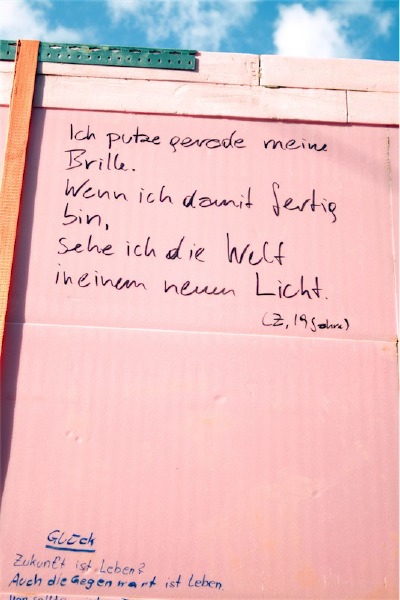 Ich putze gerade meine
Brille.
Wenn ich damit fertig
bin,
sehe ich die Welt
in einem neuen Licht.
(Z, 19 Jahre)
Glück
Zukunft ist Leben?
Auch die Gegenwart ist Leben.